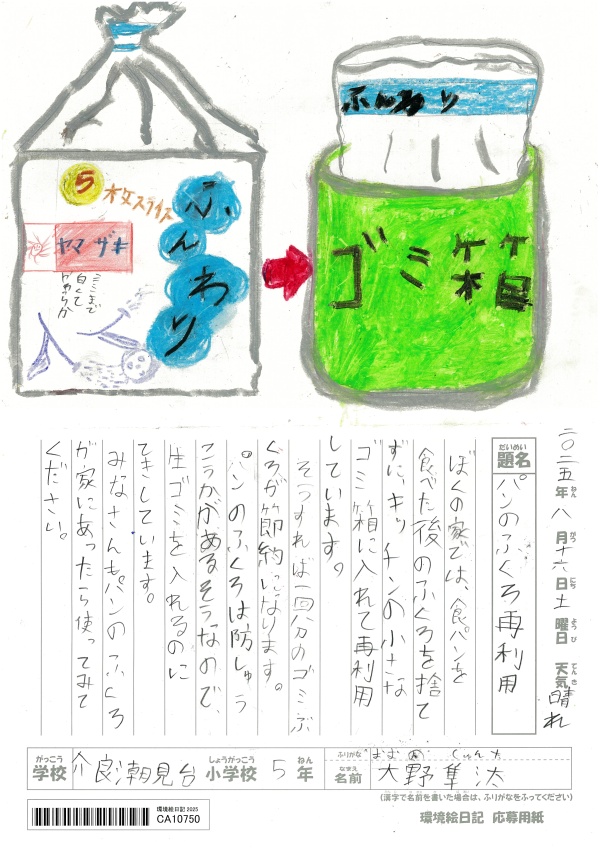 5
枚スライス
ふんわり
ヤマザキ
ミミまで
白くて
やわらか
ふんわり
ゴミ箱
二〇二五年八月十六日土曜日 天気晴れ
ねん
がつ
にち
ようび
てんき
だいめい
題名
パンのふくろ再利用
ぼくの家では、食パンを
食べた後のふくろを捨て
ずに、キッチンの小さな
ゴミ箱に入れて再利用
しています。
そうすれば一回分のゴミぶ
くろが節約になります。
パンのふくろは防しゅう
こうかがあるそうなので、
生ゴミを入れるのに
てきしています。
みなさんもパンのふくろ
が家にあったら使ってみて
ください。
がっこう
学校
良潮見台
しょうがっこう
小学校
5
ねん
年
ふりがな
なまえ
名前
大野隼汰
(漢字で名前を書いた場合は、ふりがなをふってください)
環境絵日記 2025
CA10750
環境絵日記 応募用紙